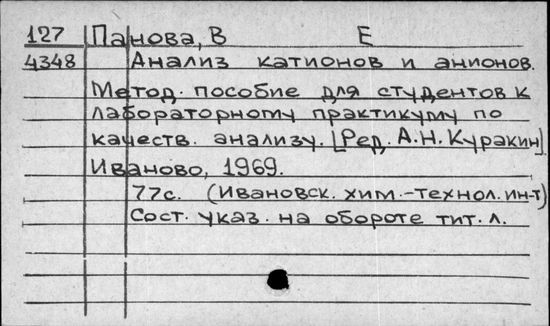 127 Панова, В Е
4348 Анализ катионов и анионов.
Метод. пособие для студентов к
лабораторному практикуму по
качеств. анализу. [Ред. А.Н. Куракин]
Иваново, 1969.
77с. (Ивановск. хим.-технол. ин-т)
Сост. указ. на обороте тит. л.